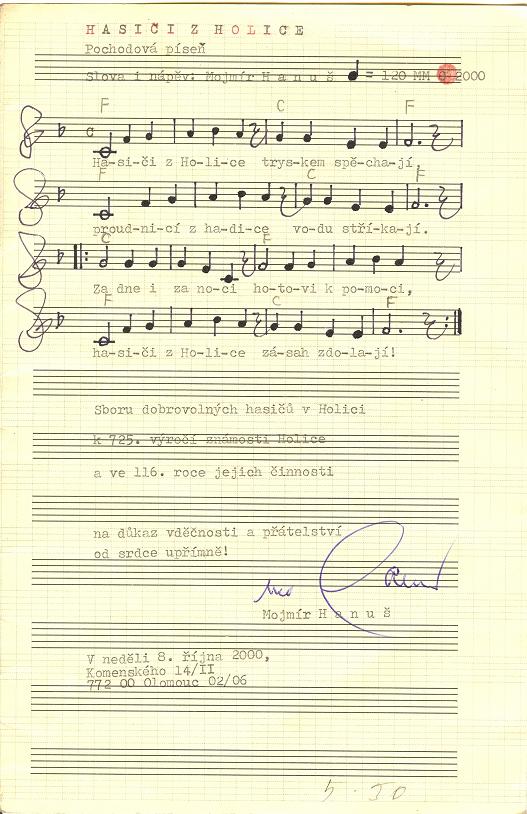 HASIČI Z HOLICE
Pochodová píseň
Slova i nápěv: Mojmír Hanuš = 120 MM 2000
F C F
C
Ha-si-či z Ho-li-ce trys-kem spě-cha-jí,
F C F
proud-ni-cí z ha-di-ce vo-du stří-ka-jí.
C F
Za dne i za no-ci ho-to-vi k po-mo-ci,
F C F
ha-si-či z Ho-li-ce zá-sah zdo-la-jí!
Sboru dobrovolných hasičů v Holici
k 725. výročí známosti Holice
a ve 116. roce jejich činnosti
na důkaz vděčnosti a přátelství
od srdce upřímně!
Mojmír Hanuš
V neděli 8. října 2000,
Komenského 14/II
772 00 Olomouc 02/06